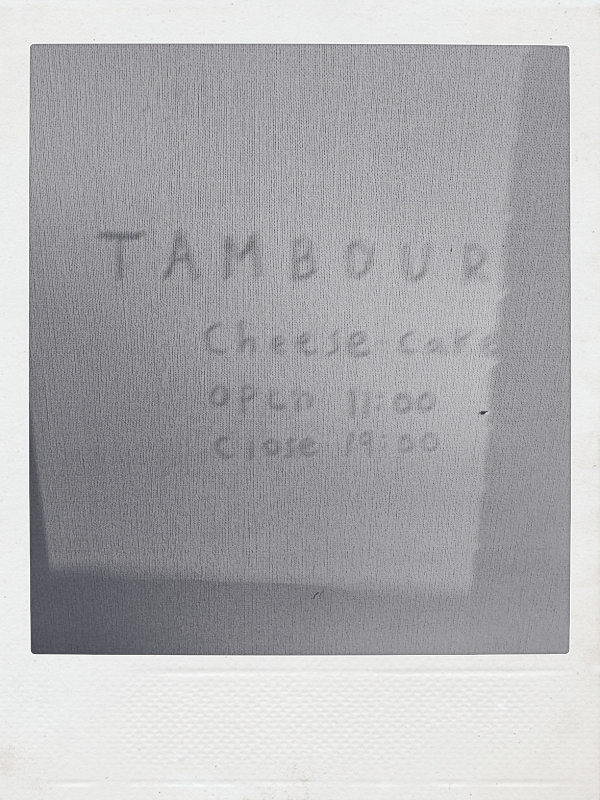 TAMBOUR
Cheese-care
open 11:00
close 19:00